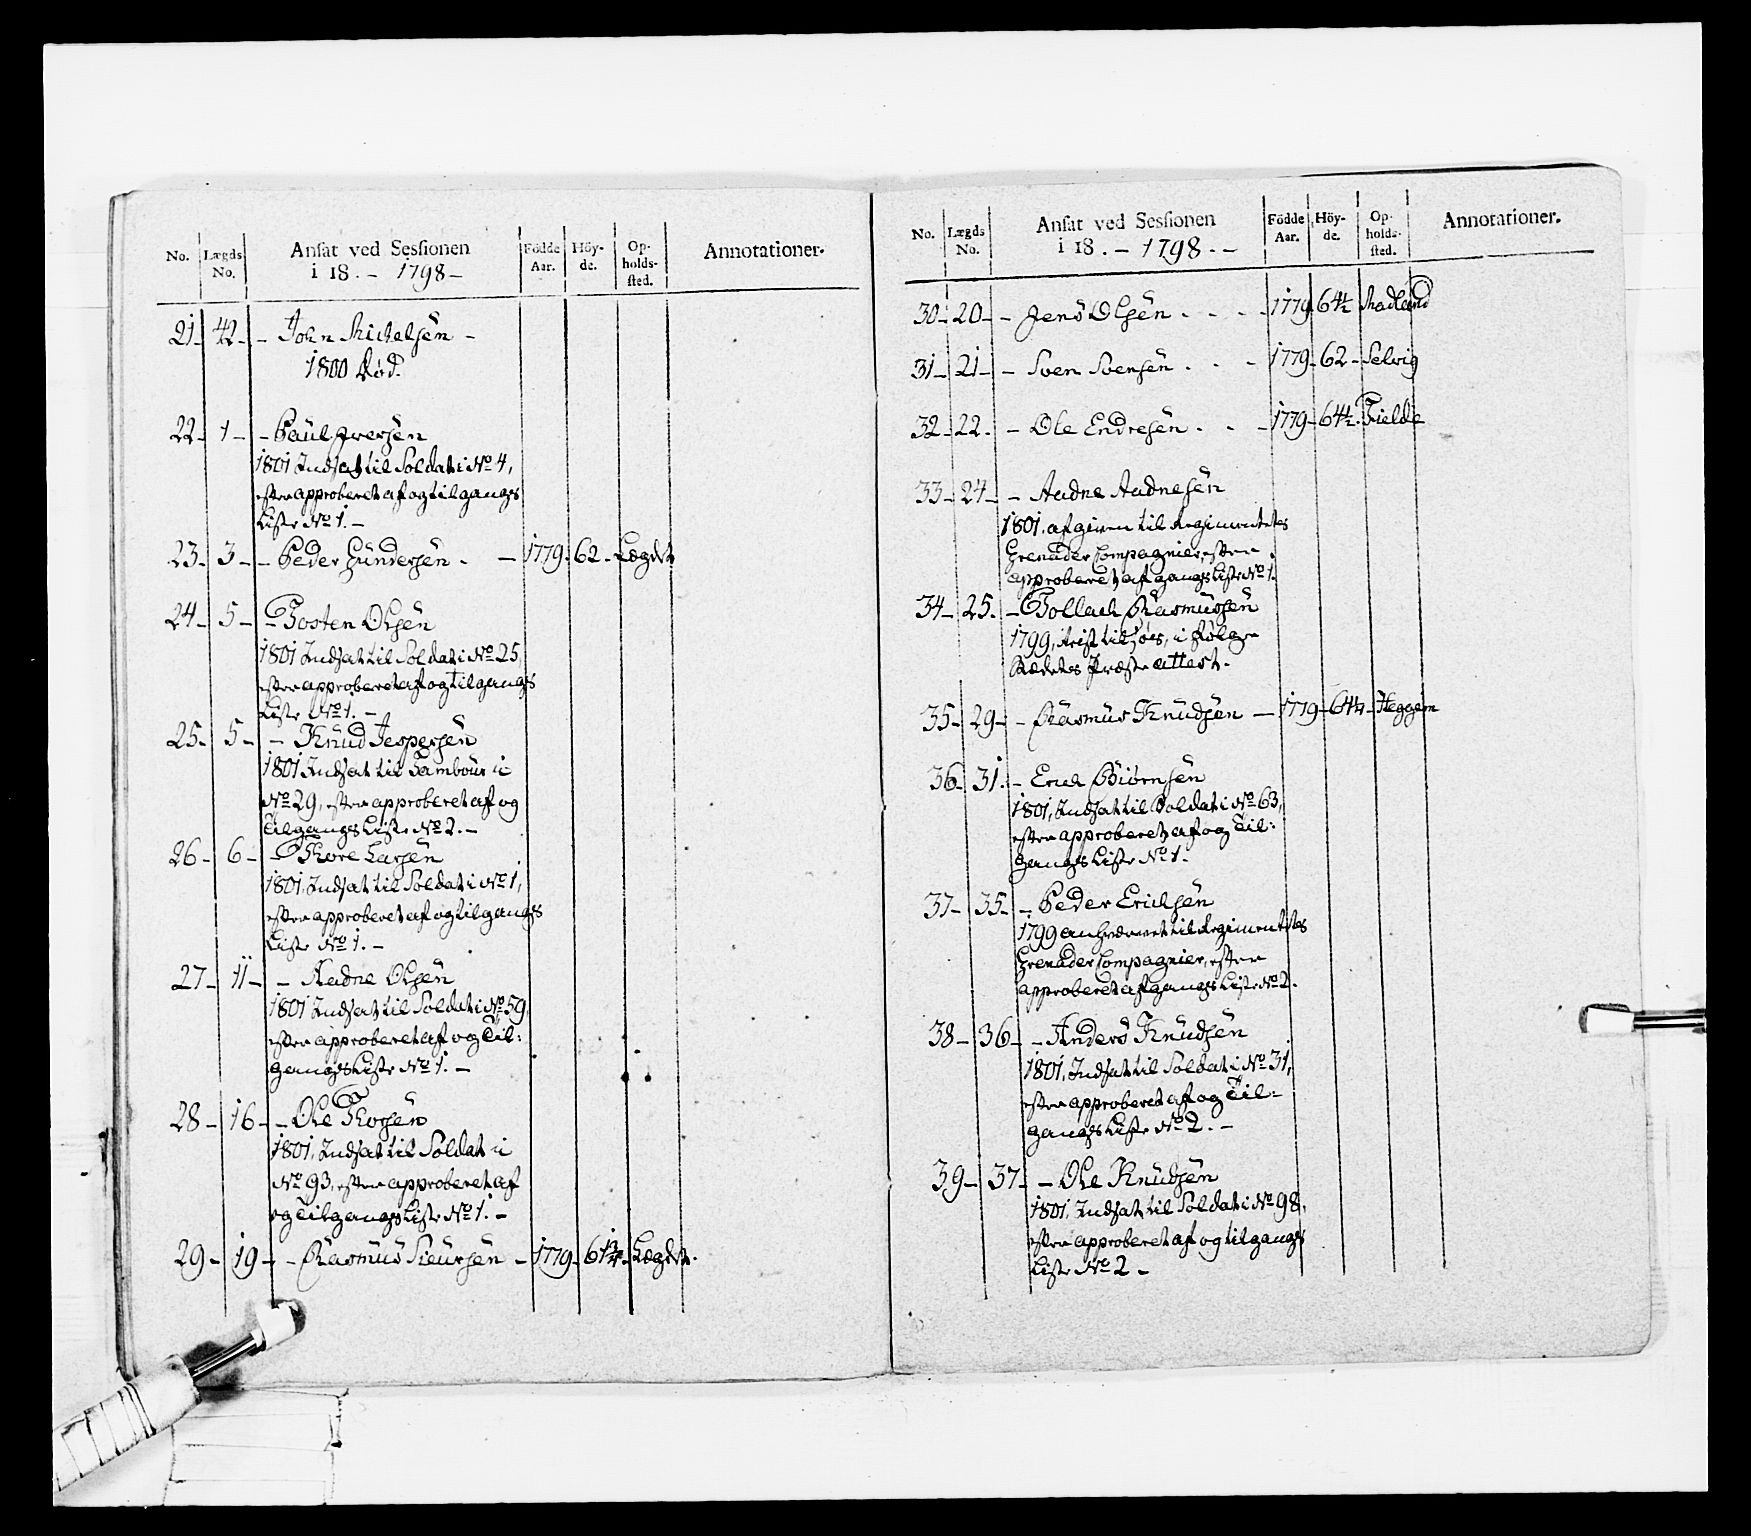 No. Lægds No. Ansat ved Sessionen i 18.- 1798- Födde Aar. Höy-de. Op-holds-sted. Annotationer.
21- 42- - John Michelsen -
1800 Död.
22- 1- - Paul Iversen
1801 Indsat til Soldat i No 4,
efter approberet af og tilgangs
Liste No 1. -
23- 3- - Peder Gundersen. - 1779- 62- Lægdet
24- 5- - Tosten Olsen
1801 Indsat til Soldat i No 25,
efter approberet af og tilgangs
Liste No 1. -
25- 5- - Knud Jespersen
1801 Indsat til Tambour i
No 29, efter approberet af og
Tilgangs Liste No 2. -
26- 6- - Thore Larsen
1801, Indsat til Soldat i No 1,
efter approberet af og tilgangs
Liste No 1. -
27- 11- - Aadne Olsen
1801 Indsat til Soldat i No 59,
efter approberet af og Til:
gangs Liste No 1. -
28- 16- - Ole Thorsen
1801, Indsat til Soldat i
No 93, efter approberet af
og Tilgangs Liste No 1. -
29- 19- - Rasmus Sieursen - 1779- 61 Lægdet.
No. Lægds No. Ansat ved Sessionen i 18.- 1798.- Födde Aar. Höy-de. Op-holds-sted. Annotationer.
30- 20- - Jens Olsen . - . - 1779- 64½ Madland
31- 21- - Sven Svensen . . - 1779- 62- Selvig
32- 22. - Ole Endresen . . - 1779- 64½. Tielde
33- 24- - Aadne Aadnesen
1801, afgiven til Regimentetes
Grenader Compagnier, efter
approberet afgangs Liste No 1.
34- 25. - Tollach Rasmussen
1799, til Söes, i fölge
Stedetes Præste attest.
35- 29- - Rasmus Knudsen - 1779- 64 - Heggem
36- 31. - Erich Biörnsen
1801, Indsat til Soldat i No 63,
efter approberet af og Til:
gangs Liste No 1.
37- 35- - Peder Erichsen
1799 anhværvet til Regimentetes
Grenader Compagnier, efter
approberet afgangs Liste No 2.
38- 36- - Anders Knudsen
1801, Indsat til Soldat i No 31,
efter approberet af og Til:
gangs Liste No 2. -
39- 37- - Ole Knudsen
1801, Indsat til Soldat i No 98,
efter approberet af og tilgangs
Liste No 2 -